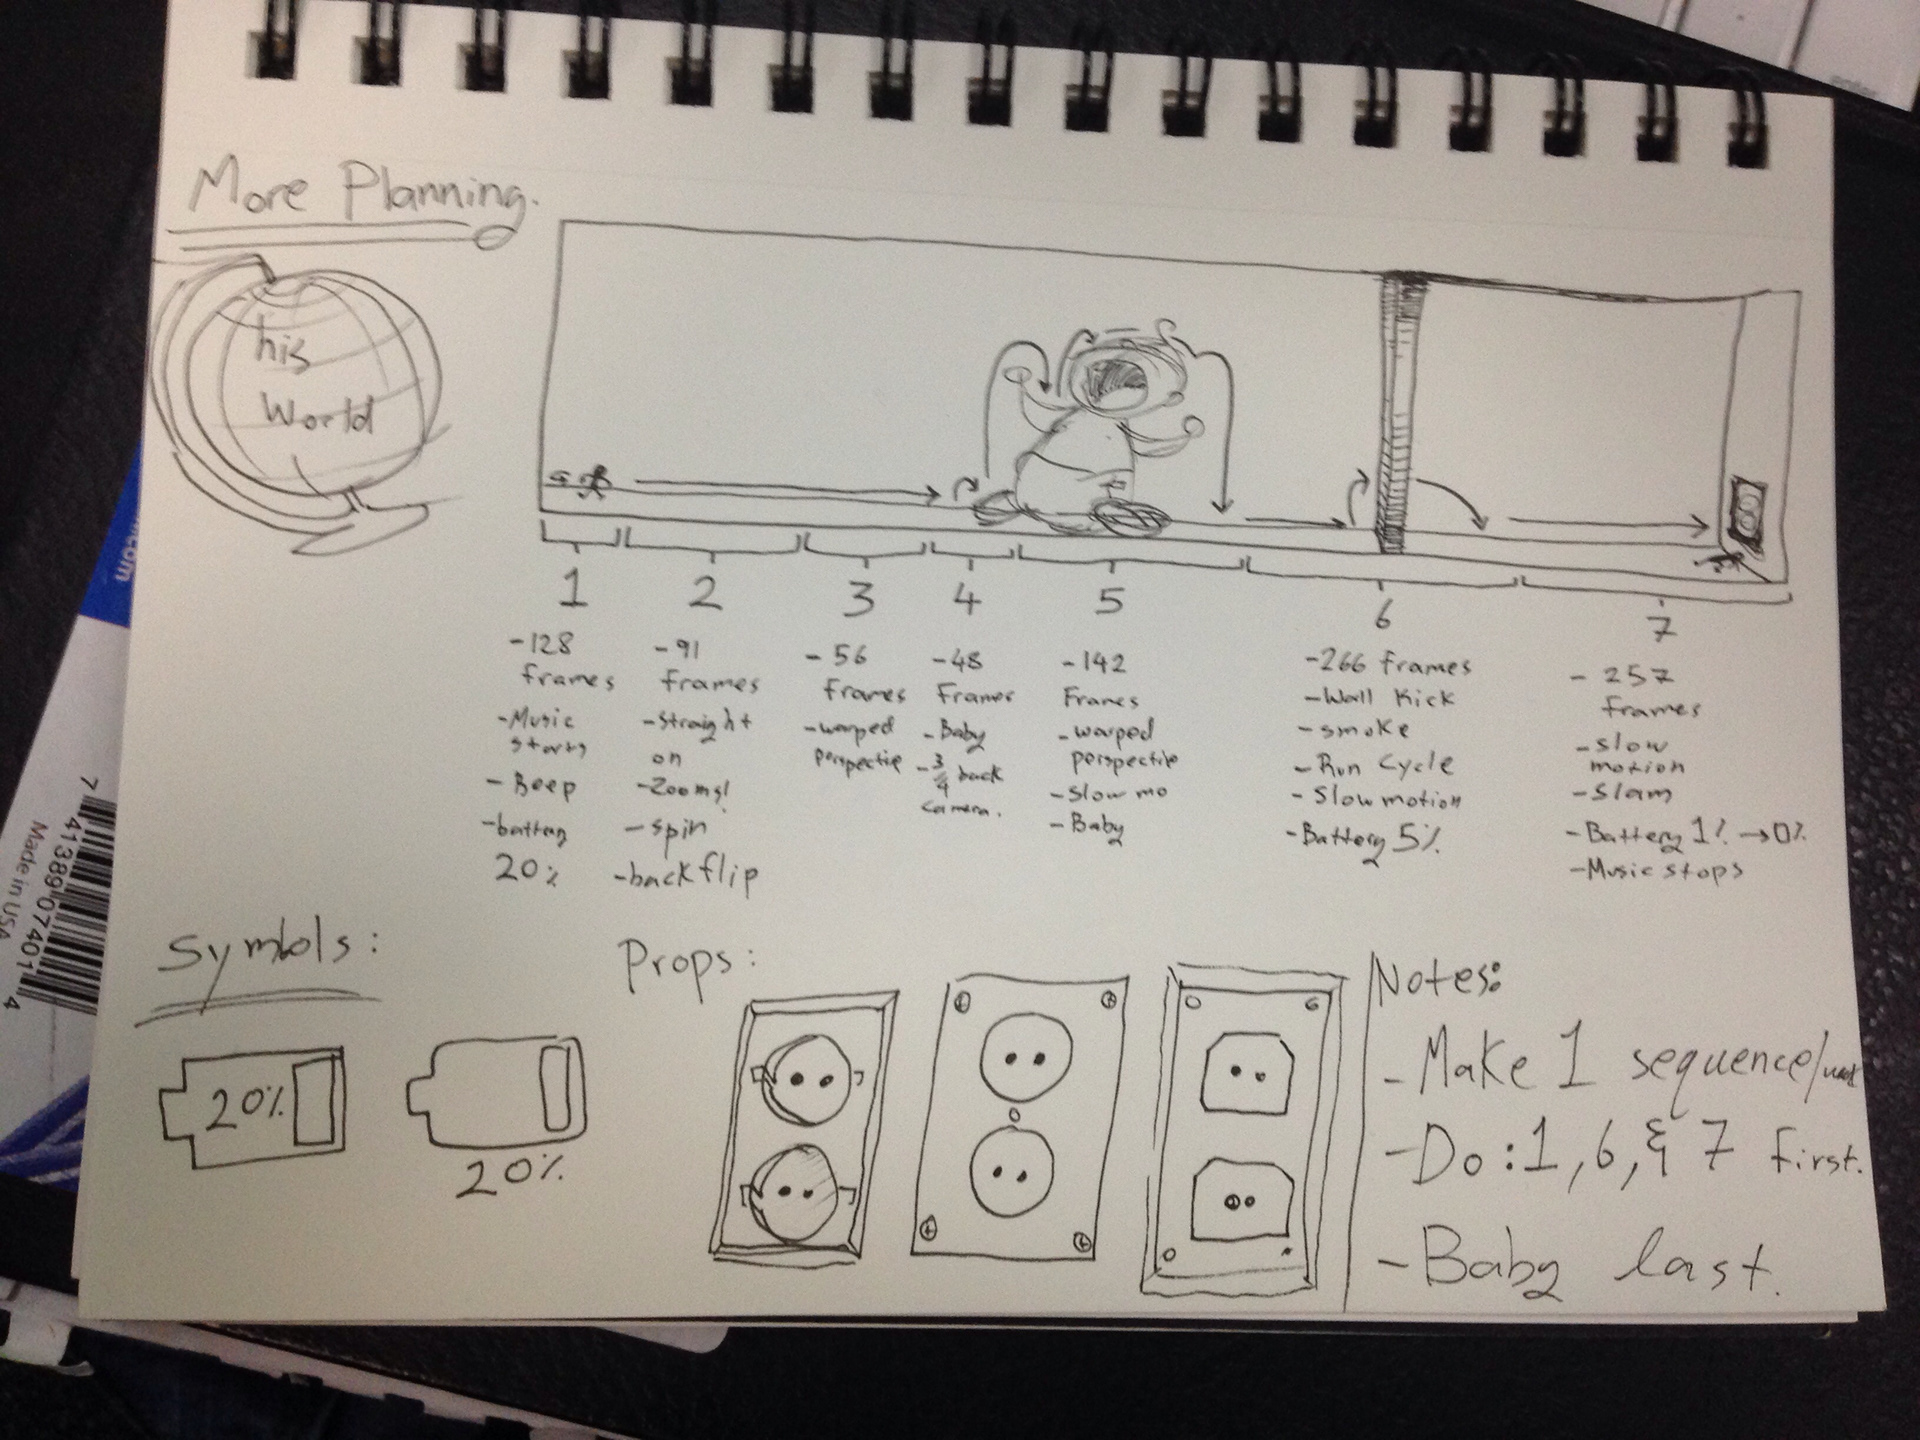 More Planning.
his
World
1
2
3
4
5
6
7
-128
frames
-Music
starts
- Beep
-battery
20%
-91
frames
-straight
on
-Zooms!
-spin
-backflip
-56
frames
-warped
perspectie
-48
Frames
-Baby
-3/4 back
camera.
-142
Frames
-warped
perspectie
-slow mo
-Baby
-266 frames
-Wall Kick
-smoke
-Run Cycle
-Slow motion
-Battery 5%
- 257
frames
-slow
motion
-slam
-Battery 1% →0%
-Music stops
Symbols:
20%
20%
Props:
Notes:
-Make 1 sequence/
-Do:1,6,& 7 first.
-Baby last.
.com
7 41389 07401 4
Made in USA